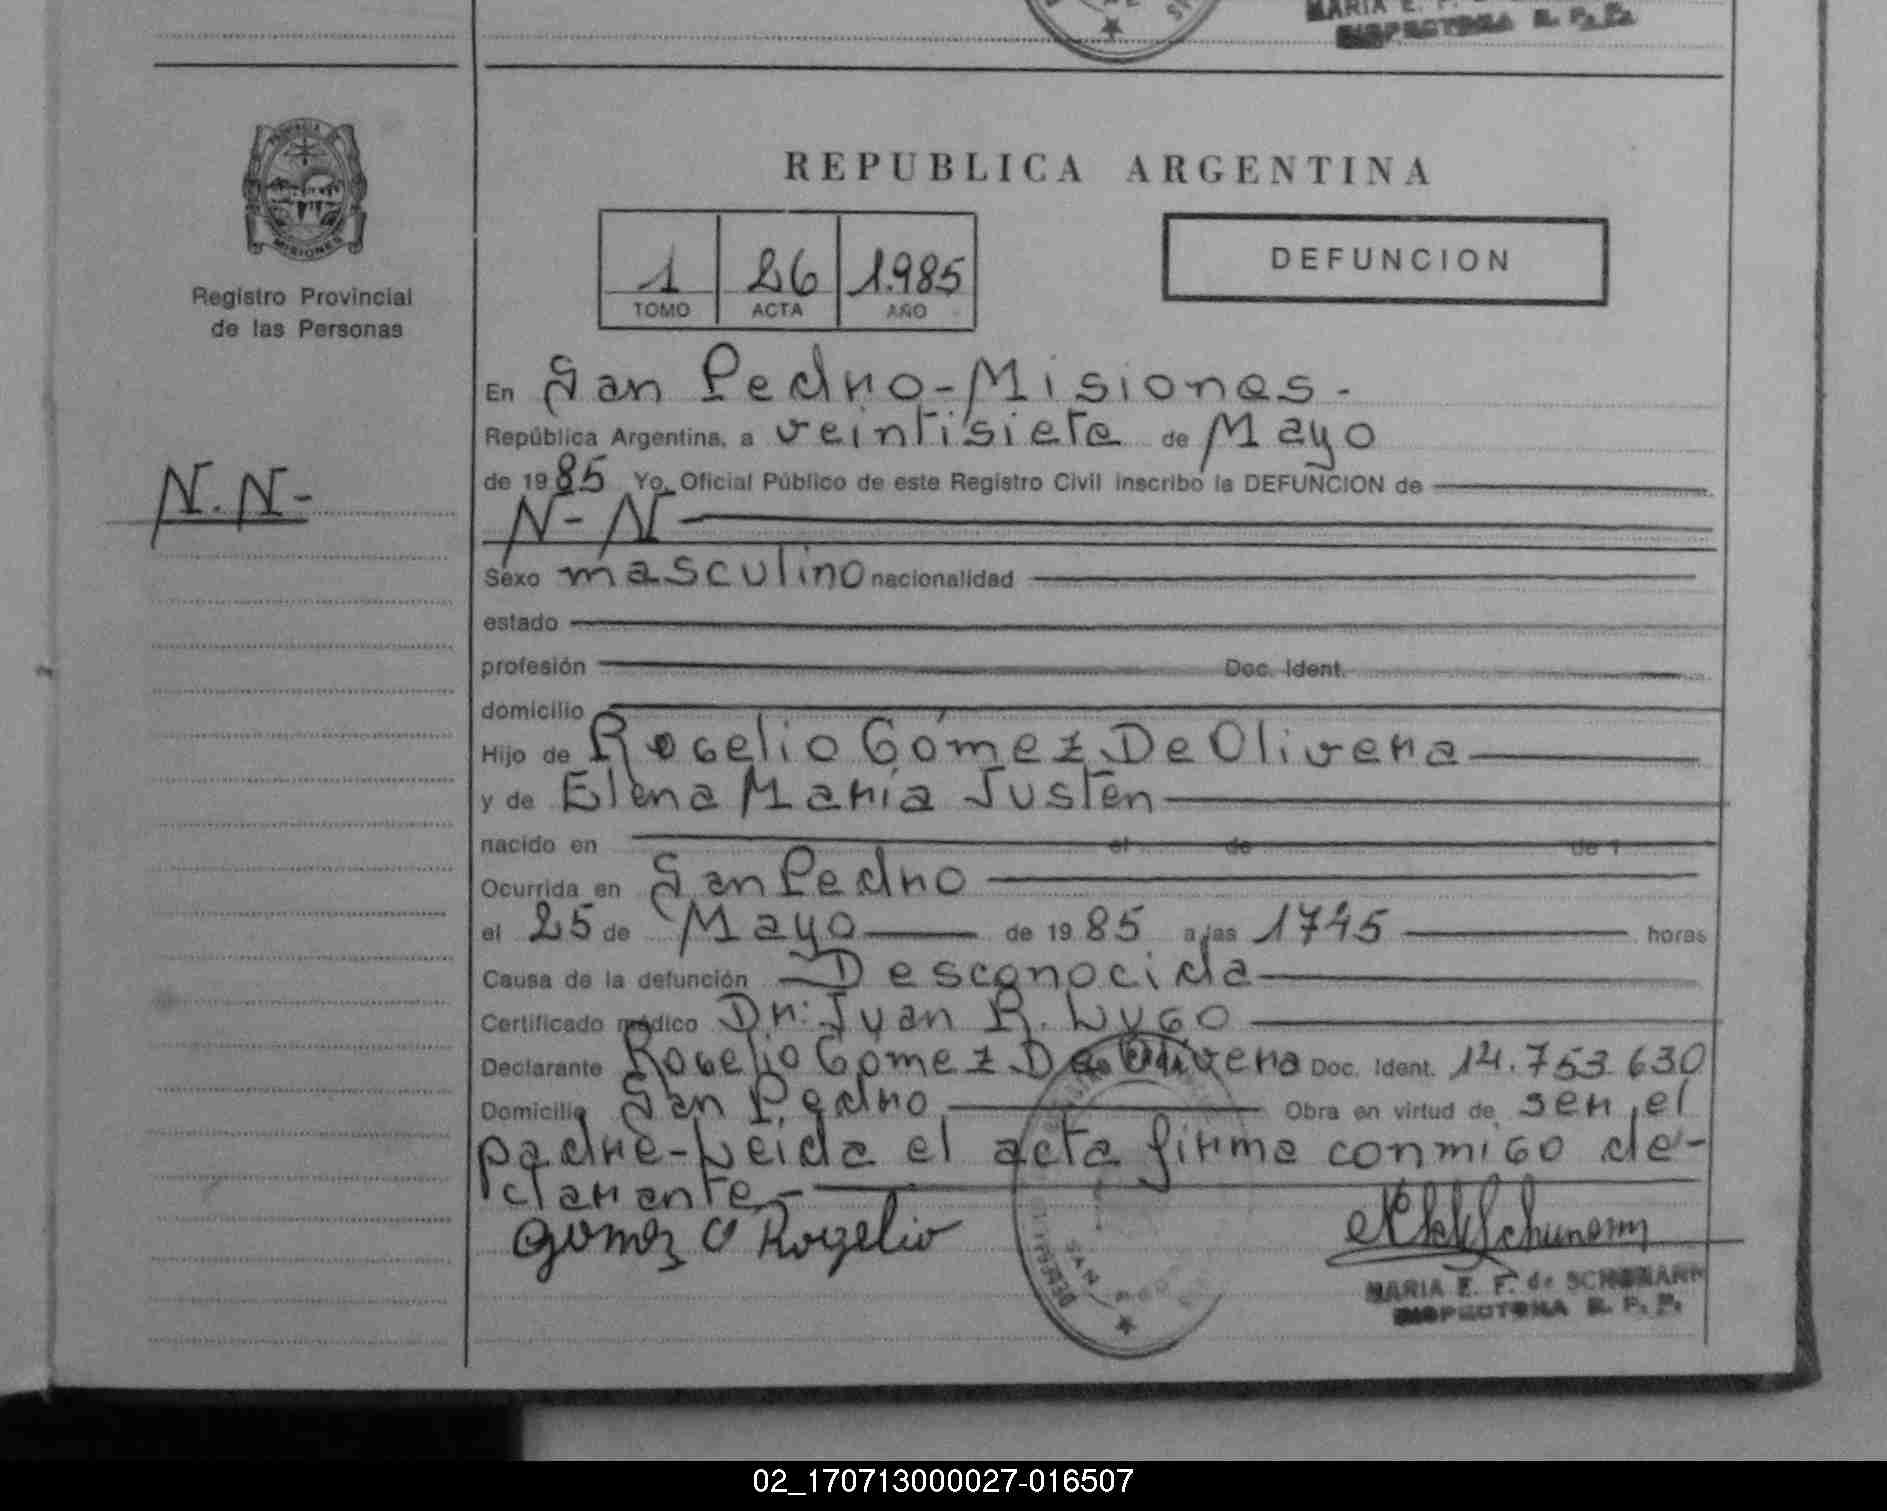 MARIA E. F.
INSPECTORA R. P. P.
PROVINCIA DE
MISIONES
Registro Provincial
de las Personas
REPUBLICA ARGENTINA
1 26 1.985
TOMO ACTA AÑO
DEFUNCION
En San Pedro-Misiones-
República Argentina, a veintisiete de Mayo
de 1985 Yo, Oficial Público de este Registro Civil inscribo la DEFUNCION de
N.N-
N-N
Sexo masculino nacionalidad
estado
profesión Doc. Ident.
domicilio
Hijo de Rogelio Gómez De Olivera
y de Elena María Justen
nacido en el de de 1
Ocurrida en San Pedro
el 25 de Mayo de 1985 a las 1745 horas
Causa de la defunción Desconocida
Certificado médico Dr: Juan R. Lugo
Declarante Rogelio Gomez De Olivera Doc. Ident. 14.753.630
Domicilio San Pedro Obra en virtud de ser el
padre-Leida el acta firma conmigo de-
clarante-
Gomez O Rogelio
SAN PEDRO
MARIA E. F. de SCHUMANN
INSPECTORA R. P. P.
02_170713000027-016507